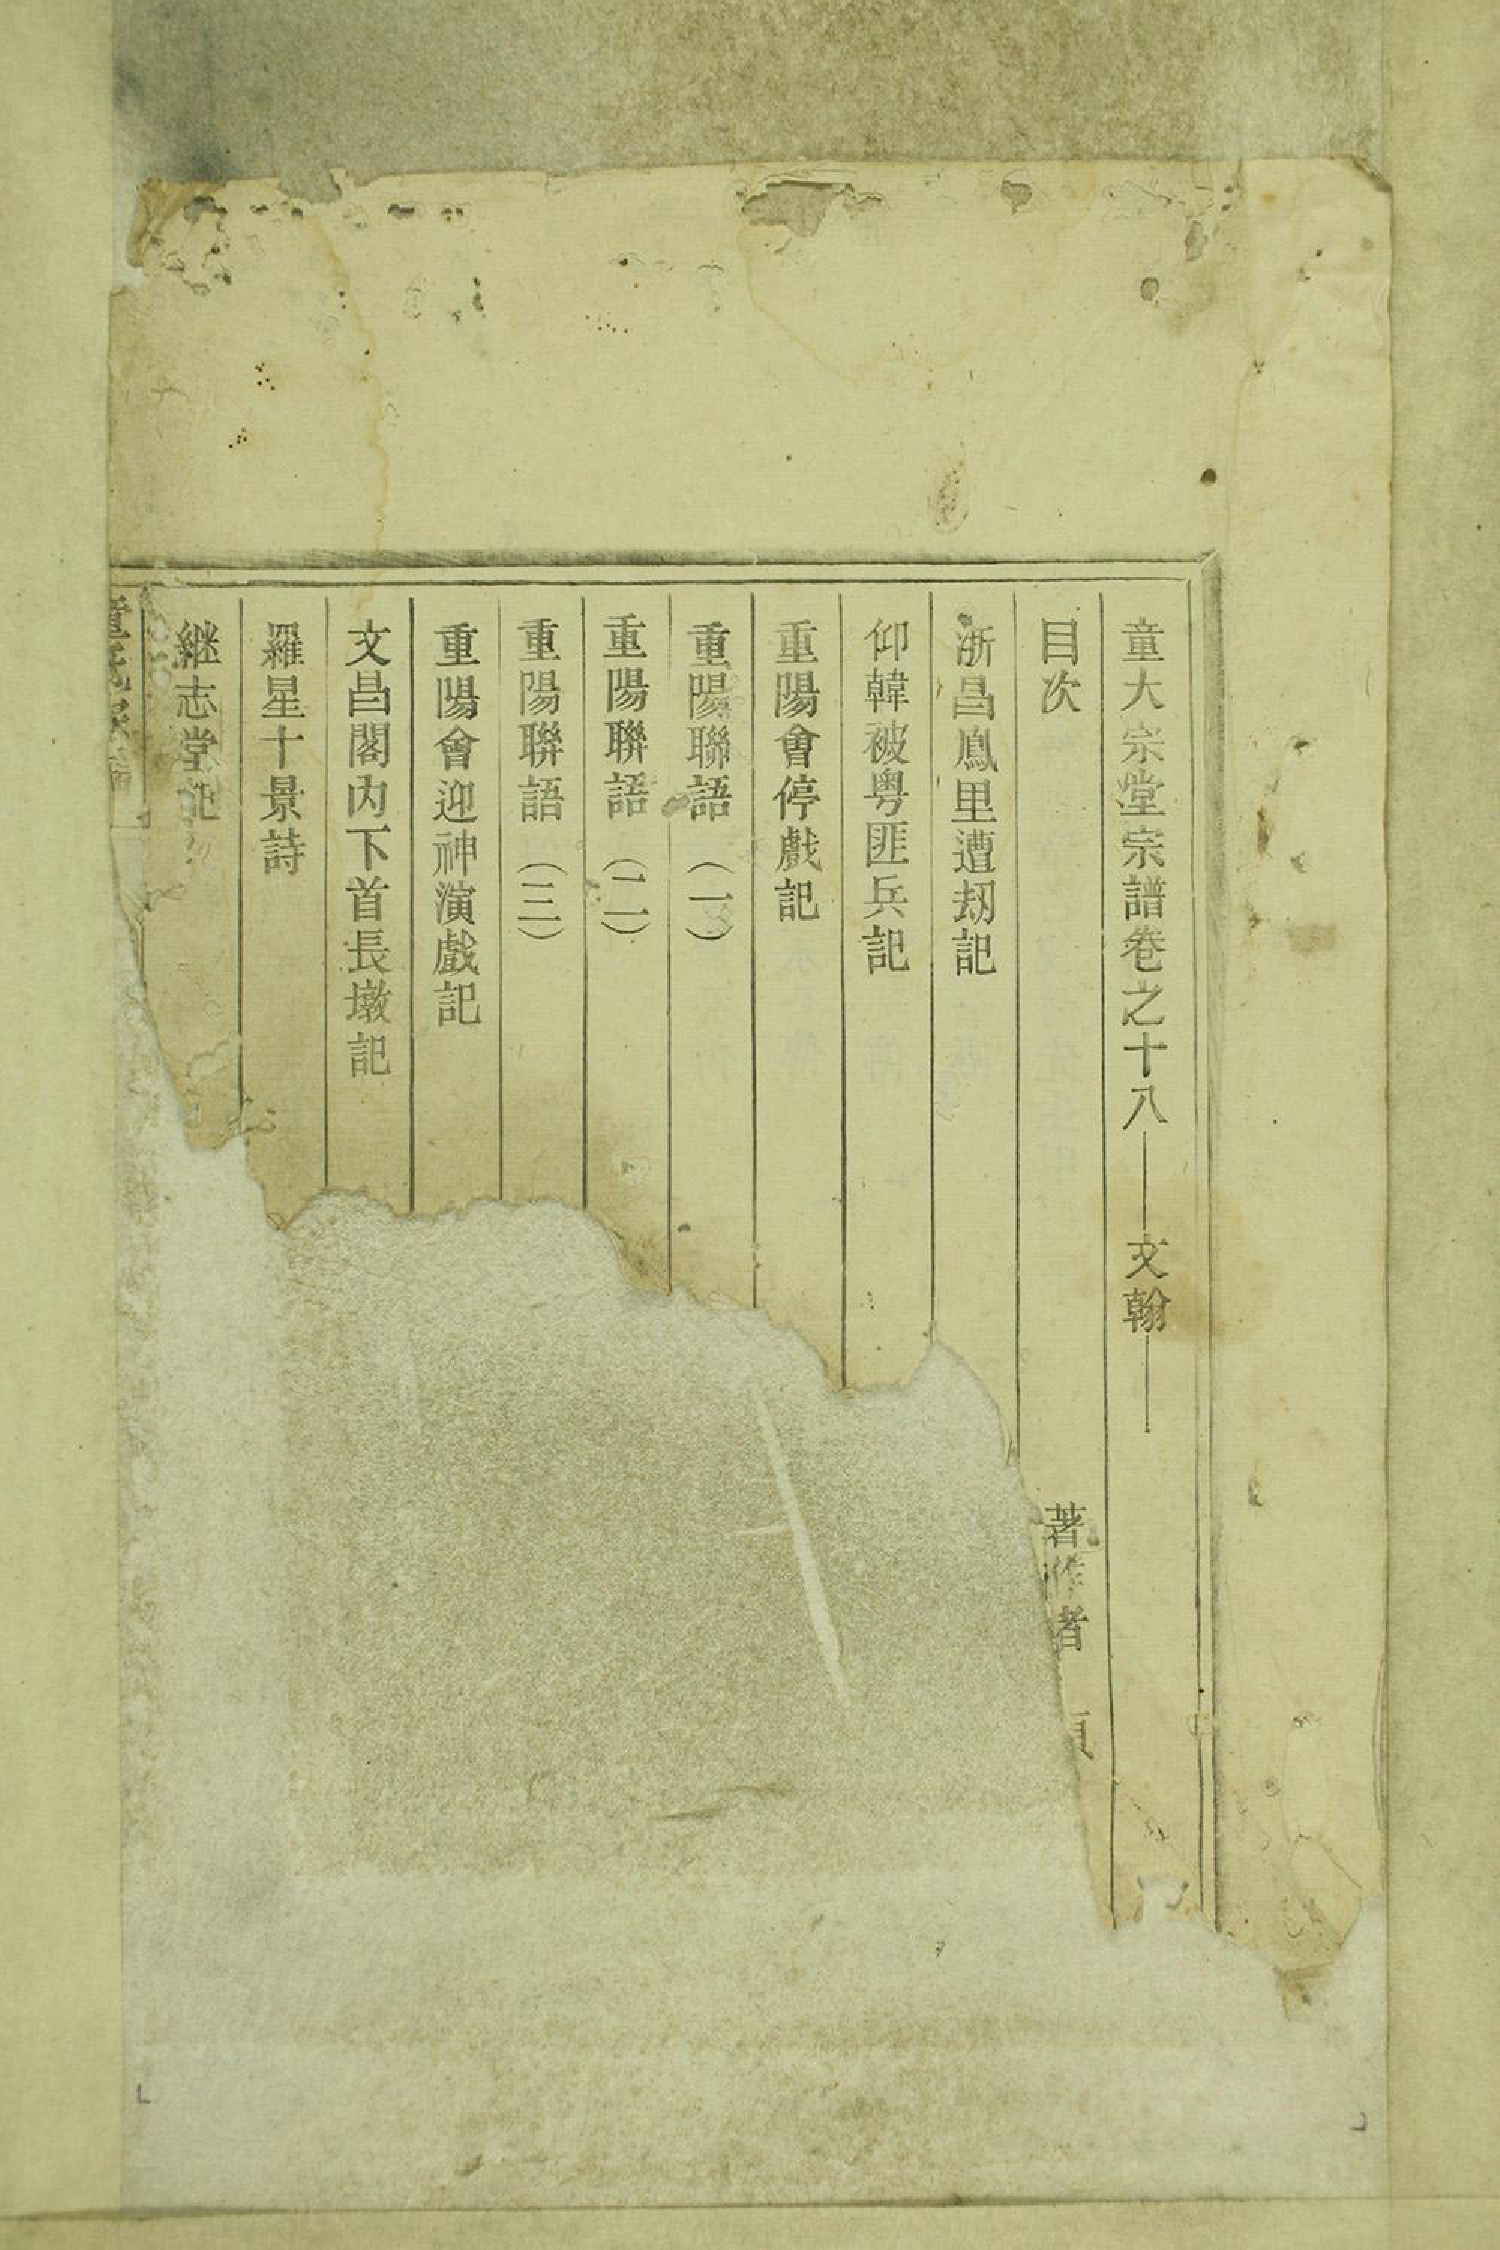 童大宗堂宗譜卷之十八——文翰——
目次 著作者 頁
浙昌鳳里遭刼記
仰韓被粤匪兵記
重陽會停戲記
重陽聯語（一）
重陽聯語（二）
重陽聯語（三）
重陽會迎神演戲記
文昌閣內下首長墩記
羅星十景詩
継志堂記
童氏宗譜